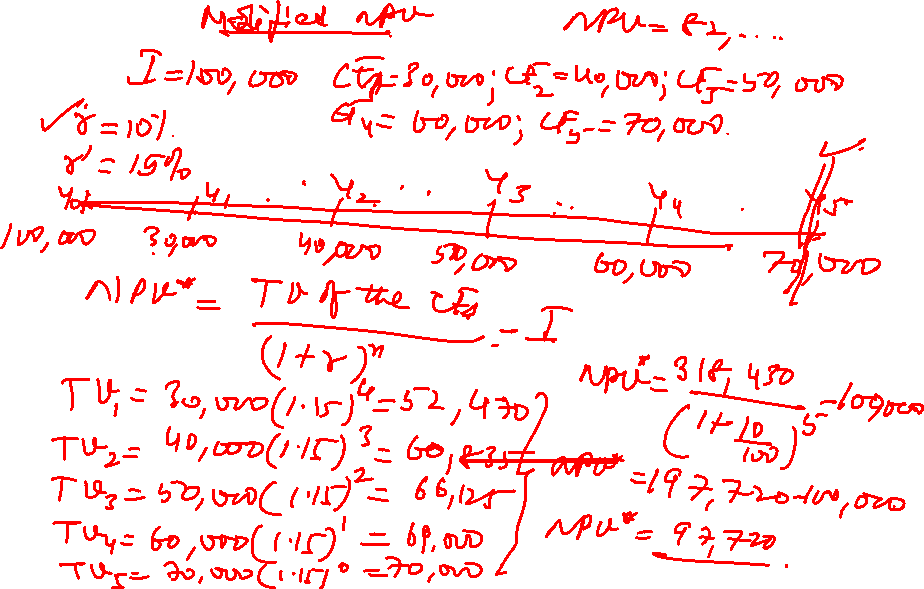 Modified NPV NPV = 82,....
I = 100,000 CF1 = 30,000; CF2 = 40,000; CF3 = 50,000
CF4 = 60,000; CF5 = 70,000.
✓ r = 10%.
r' = 15%
Y0 Y1 .. Y2 .. Y3 .. Y4 . Y5
100,000 30,000 40,000 50,000 60,000 70,000
NPV* = TV of the CFs / (1+r)^n - I
TV1 = 30,000(1.15)^4 = 52,470
TV2 = 40,000(1.15)^3 = 60,835
TV3 = 50,000(1.15)^2 = 66,125
TV4 = 60,000(1.15)^1 = 69,000
TV5 = 70,000(1.15)^0 = 70,000
NPV* = 318,430 / (1+10/100)^5 - 100,000
= 197,720-100,000
NPV* = 97,720.